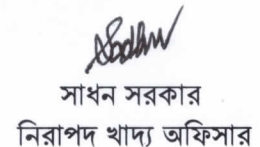 সাধন সরকার
নিরাপদ খাদ্য অফিসার